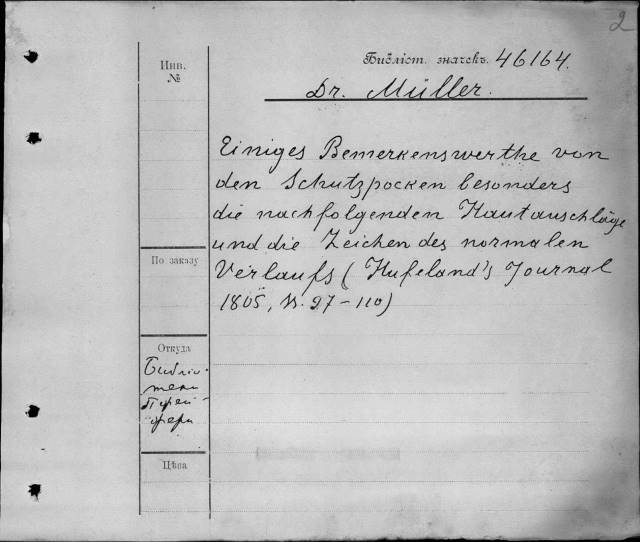 2
Инв.
№
Библіот. значекъ. 46164.
Dr. Müller.
Einiges Bemerkenswerthe von
den Schutzpocken besonders
die nachfolgenden Hautauschläge
und die Zeichen des normalen
Verlaufs (Hufeland's Journal
1805, S. 97-110)
По заказу
Откуда
Библіо-
теки
Пфей-
фера
Цѣна